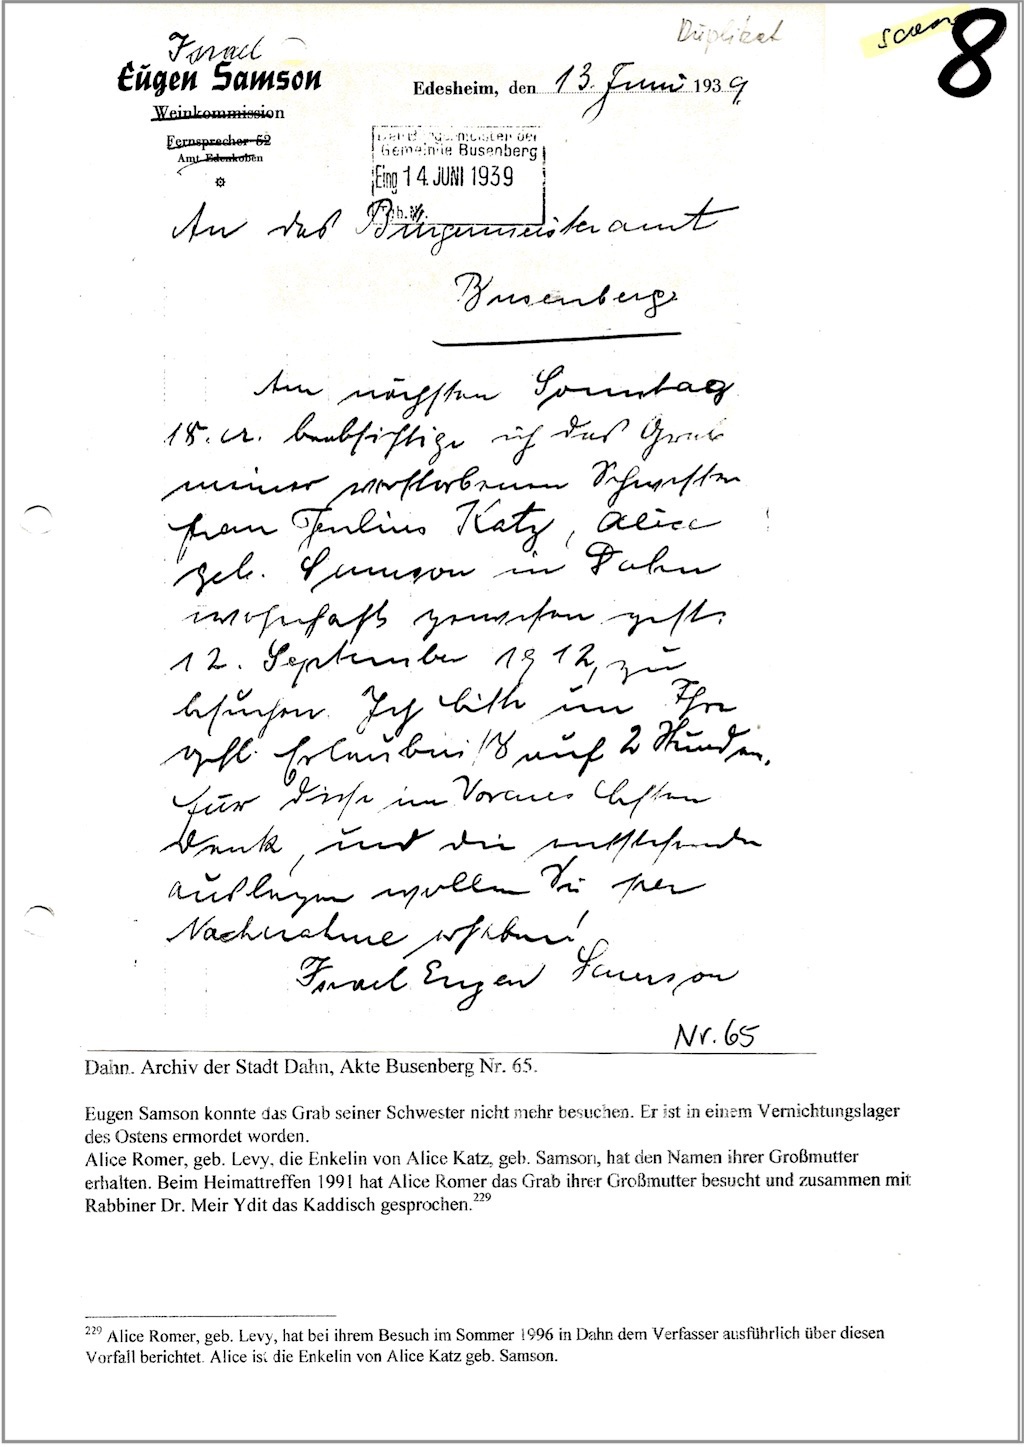 Duplikat
scan
8
Israel
Eugen Samson
Weinkommission
Fernsprecher 52
Amt Edenkoben
Edesheim, den 13. Juni 1939
Gemeinde Busenberg
Eing 14. JUNI 1939
An das Bürgermeisteramt
Busenberg
Am nächsten Sonntag
18. cr. beabsichtige ich das Grab
meiner verstorbenen Schwester
Frau Julius Katz, Alice
geb. Samson in Dahn
wohnhaft gewesen gest.
12. September 1912, zu
besuchen. Ich bitte um Ihre
gefl. Erlaubniß auf 2 Stunden.
Für diese im Voraus besten
Dank, und die entstehenden
Auslagen wollen Sie per
Nachnahme erheben!
Israel Eugen Samson
Nr. 65
Dahn. Archiv der Stadt Dahn, Akte Busenberg Nr. 65.
Eugen Samson konnte das Grab seiner Schwester nicht mehr besuchen. Er ist in einem Vernichtungslager
des Ostens ermordet worden.
Alice Romer, geb. Levy, die Enkelin von Alice Katz, geb. Samson, hat den Namen ihrer Großmutter
erhalten. Beim Heimattreffen 1991 hat Alice Romer das Grab ihrer Großmutter besucht und zusammen mit
Rabbiner Dr. Meir Ydit das Kaddisch gesprochen.229
229 Alice Romer, geb. Levy, hat bei ihrem Besuch im Sommer 1996 in Dahn dem Verfasser ausführlich über diesen
Vorfall berichtet. Alice ist die Enkelin von Alice Katz geb. Samson.